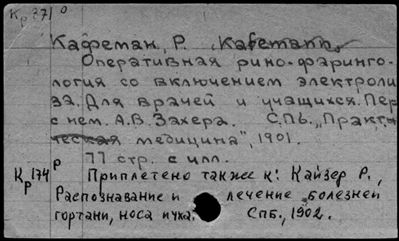 Кр 871 0
Кафеман, Р. Kafemann
Оперативная рино-фаринго-
логия со включением электроли
за. Для врачей и учащихся. Пер
с нем. А.В. Захера. СПб. „Практи
ческая медицина", 1901.
77 стр. с илл.
Кр 174 Р Приплетено также к: Кайзер Р.,
Распознавание и лечение болезней
гортани, носа и уха. СПб., 1902.